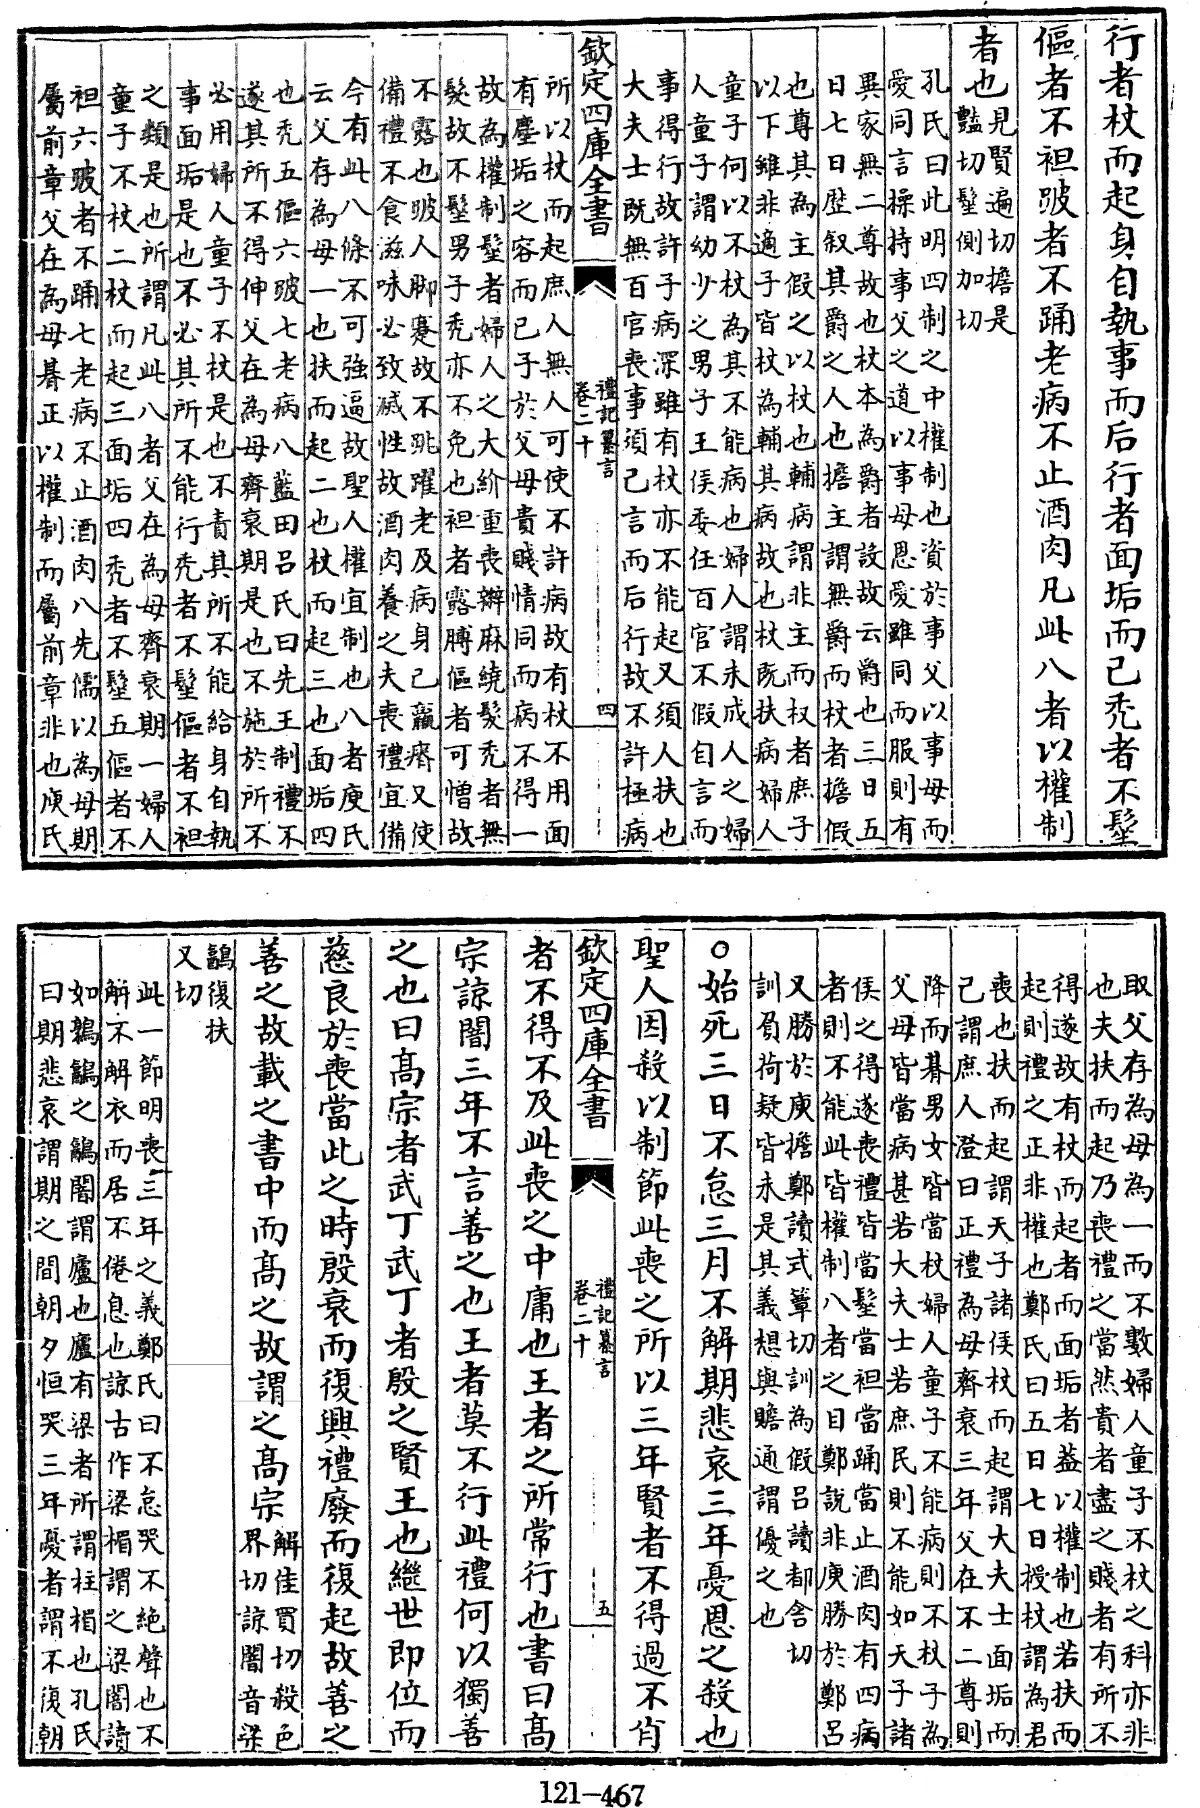 行者杖而起身自執事而后行者面垢而已禿者不髽
傴者不袒跛者不踊老病不止酒肉凡此八者以權制
者也見賢遍切擔是
豔切髽側加切
孔氏曰此明四制之中權制也資於事父以事母而
愛同言操持事父之道以事母恩愛雖同而服則有
異家無二尊故也杖本為爵者設故云爵也三日五
日七日歴叙其爵之人也擔主謂無爵而杖者擔假
也尊其為主假之以杖也輔病謂非主而杖者庶子
以下雖非適子皆杖為輔其病故也杖既扶病婦人
童子何以不杖為其不能病也婦人謂未成人之婦
人童子謂幼少之男子王侯委任百官不假自言而
事得行故許子病深雖有杖亦不能起又須人扶也
大夫士既無百官喪事須己言而后行故不許極病
欽定四庫全書 禮記纂言 卷二十 四
所以杖而起庶人無人可使不許病故有杖不用面
有塵垢之容而已子於父母貴賤情同而病不得一
故為權制髽者婦人之大紒重喪辦麻繞髮禿者無
髮故不髽男子禿亦不免也袒者露膊傴者可憎故
不露也跛人脚蹇故不跳躍老及病身已羸瘠又使
備禮不食滋味必致滅性故酒肉養之夫喪禮宜備
今有此八條不可強逼故聖人權宜制也八者庾氏
云父存為母一也扶而起二也杖而起三也面垢四
也禿五傴六跛七老病八藍田呂氏曰先王制禮不
遂其所不得伸父在為母齊衰期是也不施於所不
必用婦人童子不杖是也不責其所不能給身自執
事面垢是也不必其所不能行禿者不髽傴者不袒
之類是也所謂凡此八者父在為母齊衰期一婦人
童子不杖二杖而起三面垢四禿者不髽五傴者不
袒六跛者不踊七老病不止酒肉八先儒以為母期
屬前章父在為母朞正以權制而屬前章非也庾氏
取父存為母為一而不數婦人童子不杖之科亦非
也夫扶而起乃喪禮之當然貴者盡之賤者有所不
得遂故有杖而起者而面垢者葢以權制也若扶而
起則禮之正非權也鄭氏曰五日七日授杖謂為君
喪也扶而起謂天子諸侯杖而起謂大夫士面垢而
己謂庶人澄曰正禮為母齊衰三年父在不二尊則
降而朞男女皆當杖婦人童子不能病則不杖子為
父母皆當病甚若大夫士若庶民則不能如天子諸
侯之得遂喪禮皆當髽當袒當踊當止酒肉有四病
者則不能此皆權制八者之目鄭說非庾勝於鄭呂
又勝於庾擔鄭讀式簟切訓為假呂讀都含切
訓負荷疑皆未是其義想與贍通謂優之也
○始死三日不怠三月不解期悲哀三年憂恩之殺也
聖人因殺以制節此喪之所以三年賢者不得過不肖
欽定四庫全書 禮記纂言 卷二十 五
者不得不及此喪之中庸也王者之所常行也書曰髙
宗諒闇三年不言善之也王者莫不行此禮何以獨善
之也曰髙宗者武丁武丁者殷之賢王也繼世即位而
慈良於喪當此之時殷衰而復興禮廢而復起故善之
善之故載之書中而髙之故謂之髙宗解佳買切殺色
界切諒闇音梁
鶕復扶
又切
此一節明喪三年之義鄭氏曰不怠哭不絶聲也不
解不解衣而居不倦息也諒古作梁楣謂之梁闇讀
如鶉鶕之鶕闇謂廬也廬有梁者所謂柱楣也孔氏
曰期悲哀謂期之間朝夕恒哭三年憂者謂不復朝
121-467